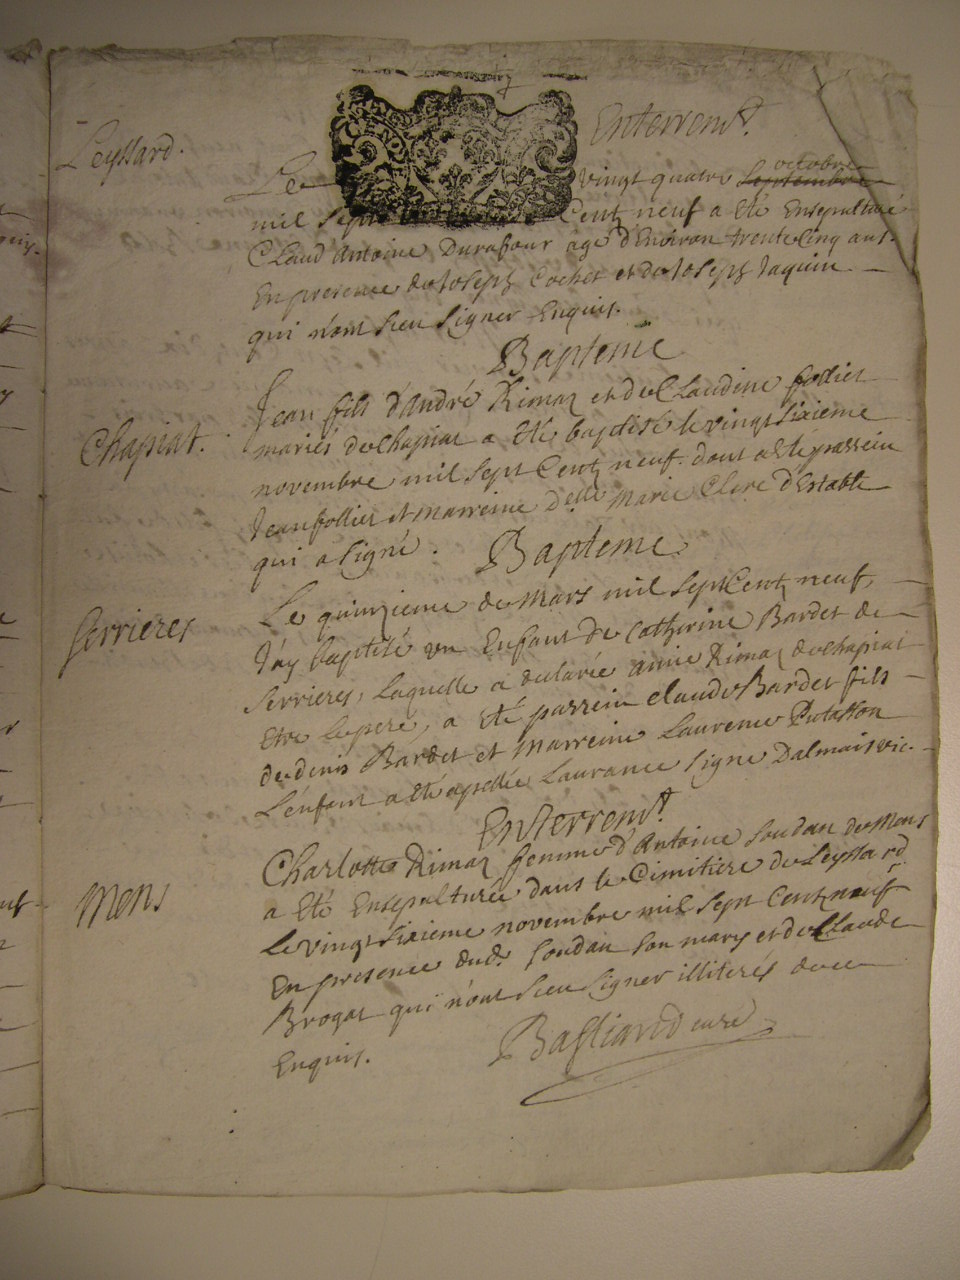 Enterremt.
Leyssard.
Le vingt quatre Septembre octobre
mil sept Centz neuf a Eté Ensepulturé
Claud Antoine Durafour agé d'Environ trente Cinq ans.
En presence de Joseph Cochet et de Joseph Jaquin
qui n'ont sceu signer Enquis.
Bapteme
Chapiat.
Jean fils d'André Rimaz et de Claudine follier
mariés de chapiat a Eté baptisé le vingt sixieme
novembre mil sept Centz neuf. dont a Eté parrein
Jean follier et marreine delle. Marie Clere d'Estable
qui a signé.
Bapteme
Serrieres
Le quinzieme de Mars mil sept Centz neuf,
J'ay baptisé un Enfant de Catherine Bardet de
Serrieres, laquelle a declarée anne Rimaz de chapiat
Etre le pere, a Eté parrein claude Bardet fils
de denis Bardet et marreine Laurence Putasson
L'enfant a Eté apellée Laurance signe Dalmais vic.
Enterremt.
Mens
Charlotte Rimaz femme d'Antoine Soudan de Mens
a Eté Ensepulturée dans le Cimitiere de Leyssard
le vingt sixieme novembre mil sept Centz neuf
En presence dud. Soudan son mary et de Claude
Brogat qui n'ont sceu signer illiterés de ce
Enquis.
Bastiand curé